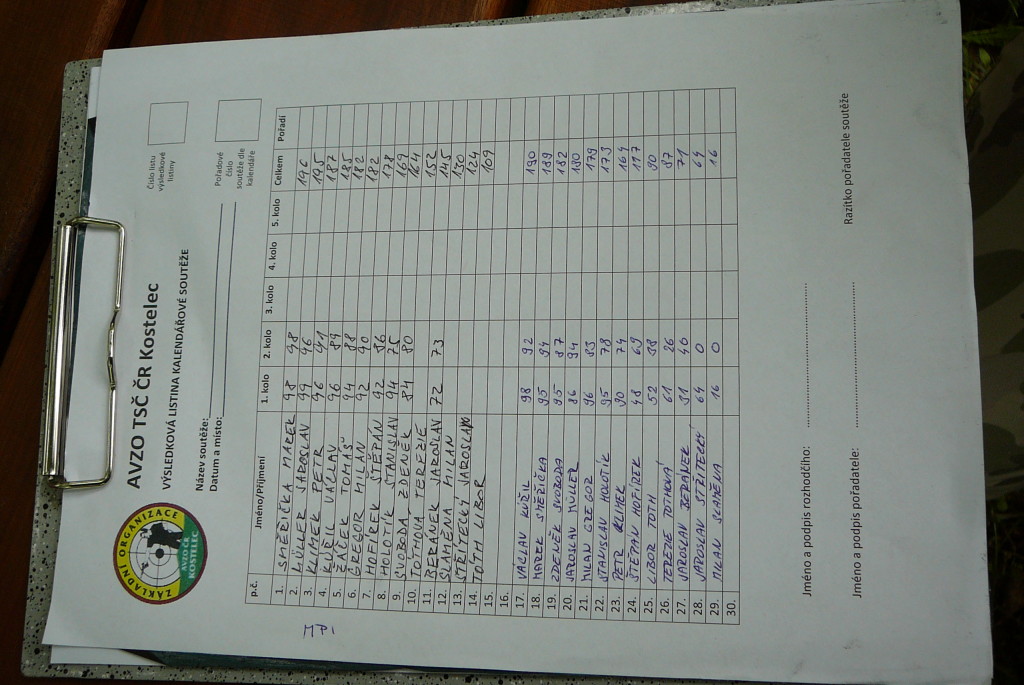 ZÁKLADNÍ ORGANIZACE
AVZO ČR
KOSTELEC
AVZO TSČ ČR Kostelec
VÝSLEDKOVÁ LISTINA KALENDÁŘOVÉ SOUTĚŽE
Číslo listu
výsledkové
listiny
Název soutěže:
Datum a místo:
Pořadové
číslo
soutěže dle
kalendáře
p.č. Jméno/Přijmení 1. kolo 2. kolo 3. kolo 4. kolo 5. kolo Celkem Pořadí
1. SMĚŘIČKA MAREK 98 98 196
2. MÜLLER JAROSLAV 99 96 195
3. KLIMEK PETR 96 91 187
4. KUŽIL VÁCLAV 96 89 185
5. ŽÁČEK TOMÁŠ 94 88 182
6. GREGOR MILAN 92 90 182
7. HOFÍREK ŠTĚPÁN 92 86 178
8. HOLOTÍK STANISLAV 94 75 169
9. SVOBODA ZDENĚK 84 80 164
10. TOTHOVÁ TEREZIE 152
11. BERÁNEK JAROSLAV 72 73 145
12. SLAMĚNA MILAN 130
13. STŘÍTECKÝ JAROSLAV 124
14. TÓTH LIBOR 109
15.
16.
17. VÁCLAV KUŽIL 98 92 190
18. MAREK SMĚŘIČKA 95 94 189
19. ZDENĚK SVOBODA 95 87 182
20. JAROSLAV MULLER 86 94 180
21. MILAN GREGOR 96 83 179
22. STANISLAV HOLOTÍK 95 78 173
23. PETR KLIMEK 90 74 164
24. ŠTĚPÁN HOFÍREK 48 69 117
25. LIBOR TOTH 52 38 90
26. TEREZIE TOTHOVÁ 61 26 87
27. JAROSLAV BERÁNEK 31 40 71
28. JAROSLAV STŘÍTECKÝ 64 0 64
29. MILAN SLAMĚNA 16 0 16
30.
Jméno a podpis rozhodčího:
Jméno a podpis pořadatele:
Razítko pořadatele soutěže